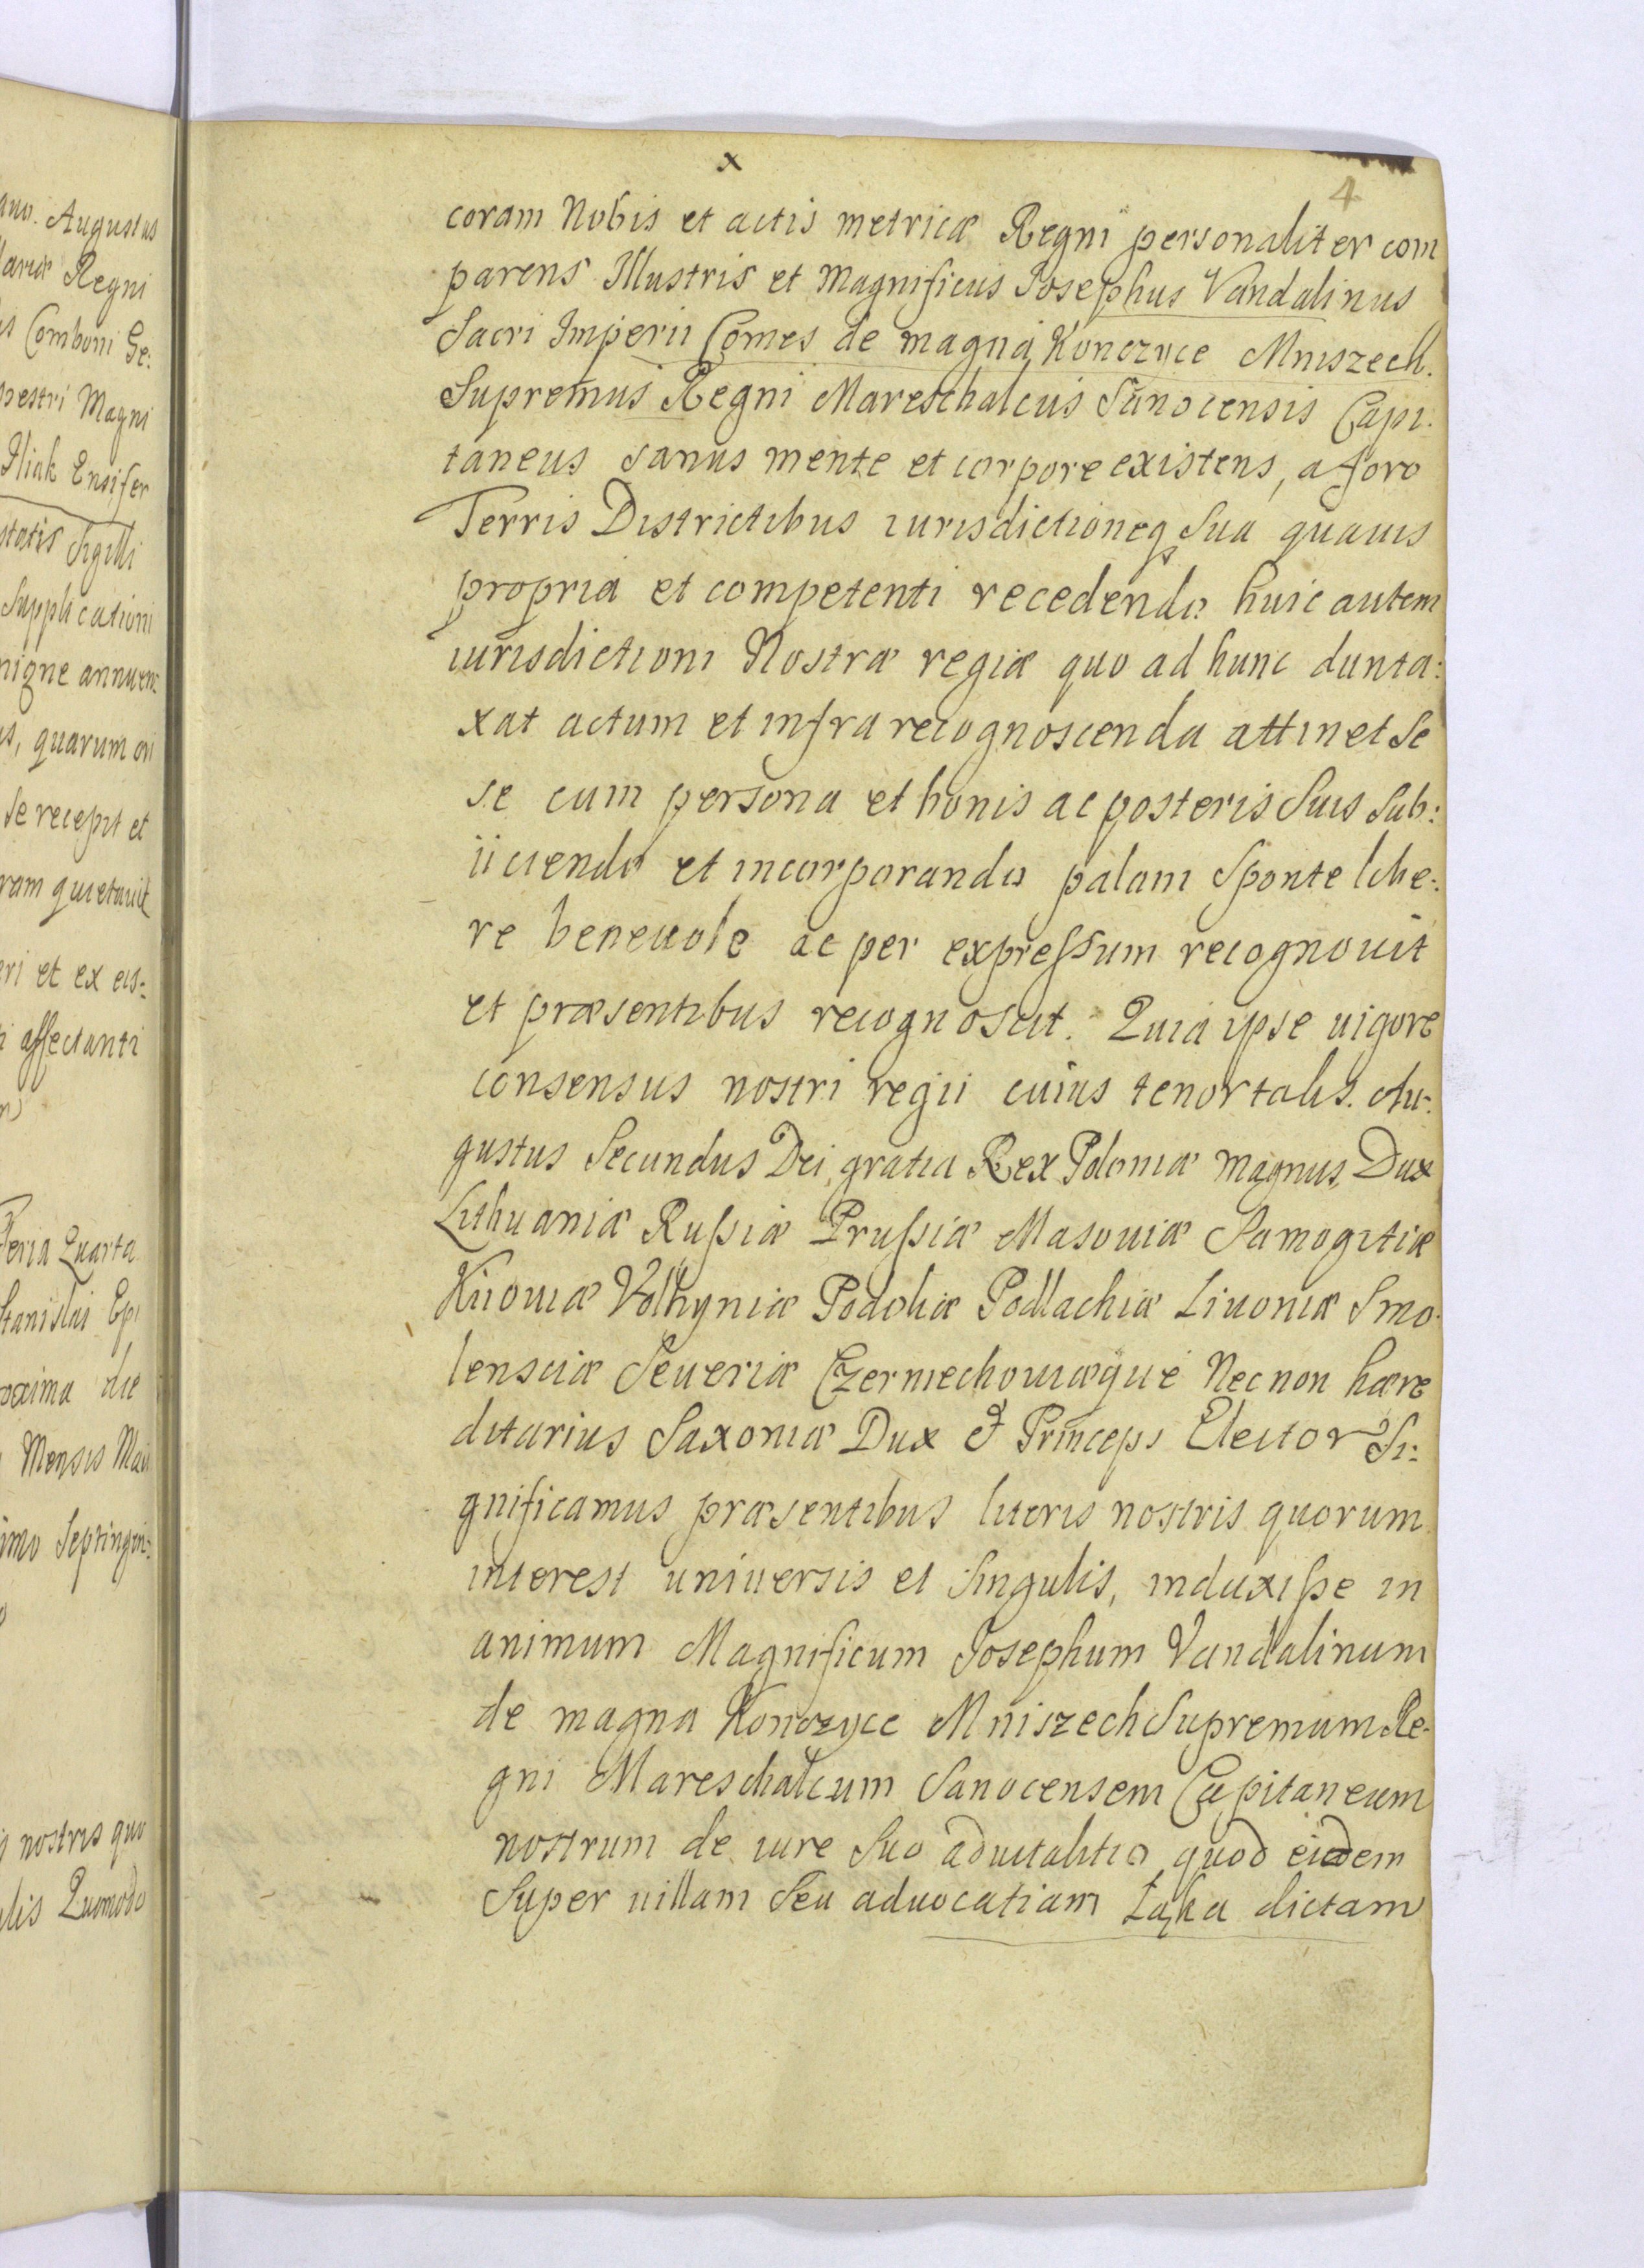 ano. Augustus
Regni
Comboni Ge:
Magni
Iliak Ensifer
statis Sigilli
Supplicationi
nigne annuen:
is, quarum ori
se recepit et
ram quietauit
ri et ex eis:
i affectanti
Feria Quarta
Stanislai Epi
oxima die
Mensis Maii
imo Septingen:
nostris quo
lis Quomodo
x
4
coram Nobis et actis metricæ Regni personaliter com
parens Illustris et Magnificus Josephus Vandalinus
Sacri Imperii Comes de magna Konczyce Mniszech.
Supremus Regni Mareschalcus Sanocensis Capi.
taneus sanus mente et corpore existens, a foro
Terris Districtibus iurisdictioneq sua quauis
propria et competenti recedendo huic autem
iurisdictioni Nostræ regiæ quo ad hunc dunta:
xat actum et infra recognoscenda attinet Se
se cum persona et bonis ac posteris Suis Sub:
iiciendo et incorporando palam Sponte libe:
re beneuole ac per expreſsum recognouit
et præsentibus recognoscit. Quia ipse uigore
consensus nostri regii cuius tenor talis. Au:
gustus Secundus Dei gratia Rex Poloniæ Magnus Dux
Lithuaniæ Ruſsiæ Pruſsiæ Masouiæ Samogitiæ
Kiiouiæ Volhyniæ Podoliæ Podlachiæ Liuoniæ Smo.
lensciæ Seueriæ Czerniechouiæque Nec non hære
ditarius Saxoniæ Dux & Princeps Elector Si:
gnificamus præsentibus literis nostris quorum
interest uniuersis et Singulis, induxiſse in
animum Magnificum Josephum Vandalinum
de magna Konczyce Mniszech Supremum Re-
gni Mareschalcum Sanocensem Capitaneum
nostrum de iure Suo aduitalitio quod eidem
Super uillam Seu aduocatiam Łąka dictam